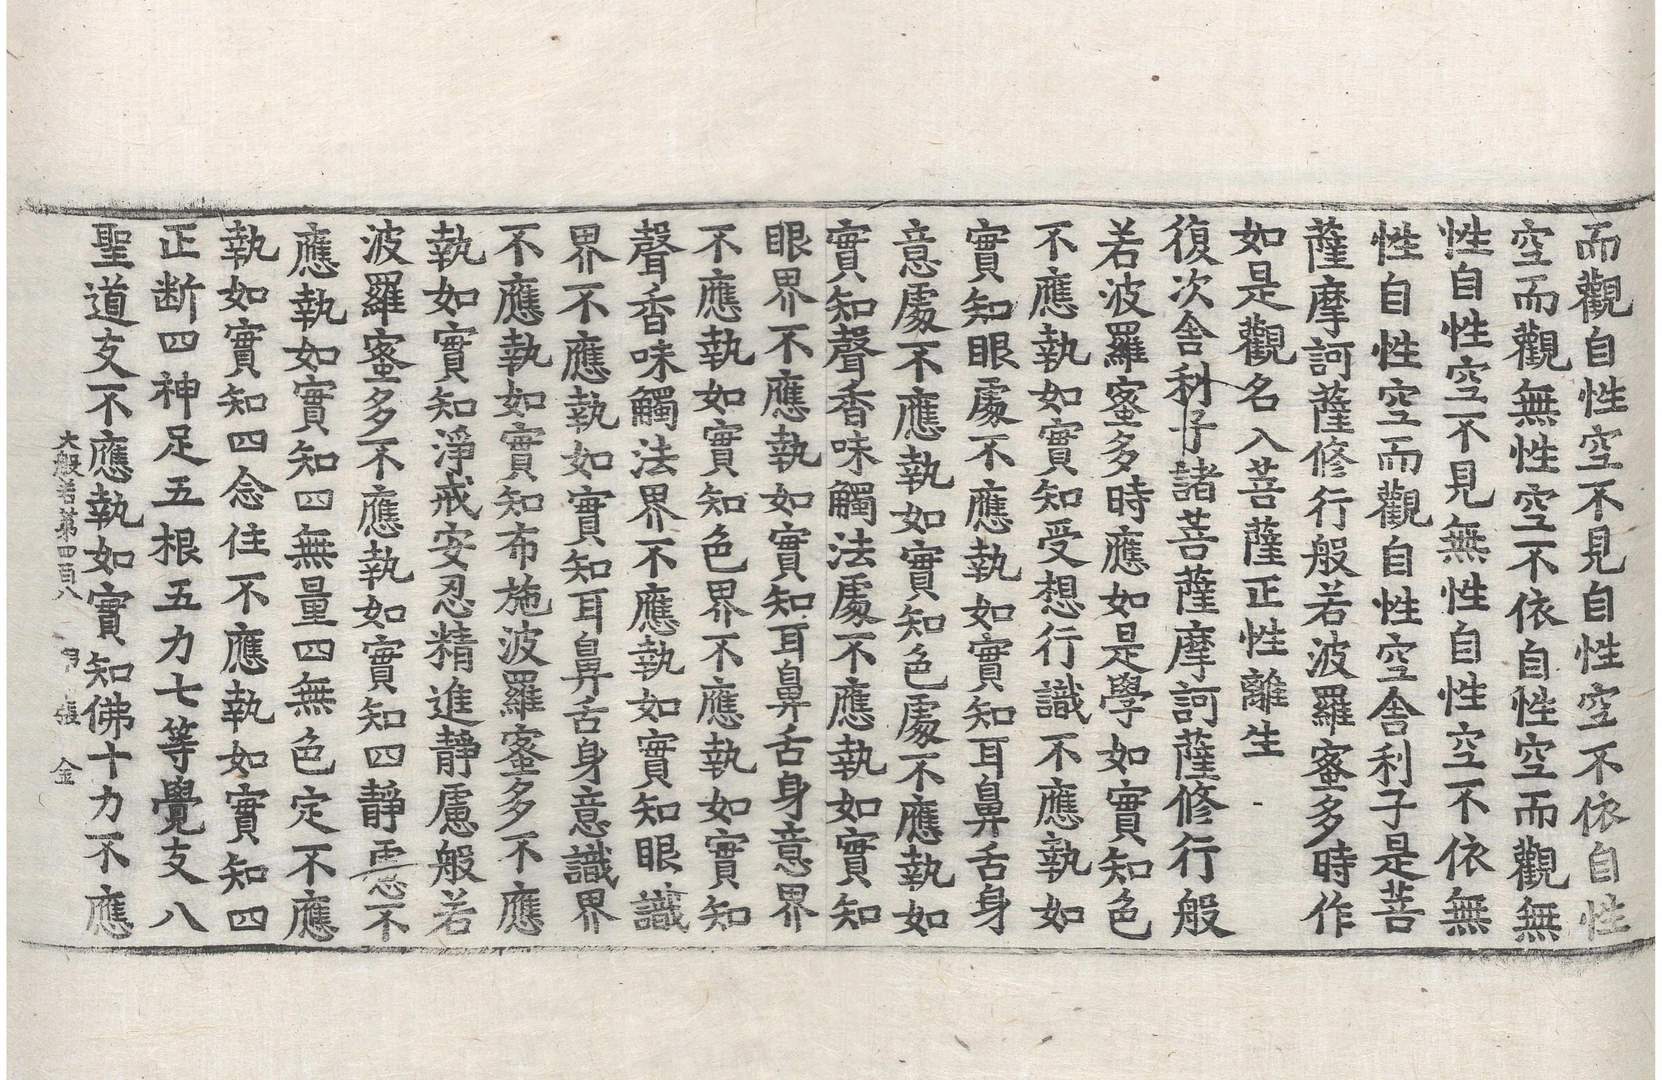 而觀自性空不見自性空不依自性
空而觀無性空不依自性空而觀無
性自性空不見無性自性空不依無
性自性空而觀自性空舍利子是菩
薩摩訶薩修行般若波羅蜜多時作
如是觀名入菩薩正性離生
復次舍利子諸菩薩摩訶薩修行般
若波羅蜜多時應如是學如實知色
不應執如實知受想行識不應執如
實知眼處不應執如實知耳鼻舌身
意處不應執如實知色處不應執如
實知聲香味觸法處不應執如實知
眼界不應執如實知耳鼻舌身意界
不應執如實知色界不應執如實知
聲香味觸法界不應執如實知眼識
界不應執如實知耳鼻舌身意識界
不應執如實知布施波羅蜜多不應
執如實知淨戒安忍精進靜慮般若
波羅蜜多不應執如實知四靜慮不
應執如實知四無量四無色定不應
執如實知四念住不應執如實知四
正断四神足五根五力七等覺支八
聖道支不應執如實知佛十力不應
大般若第四百八 張 金